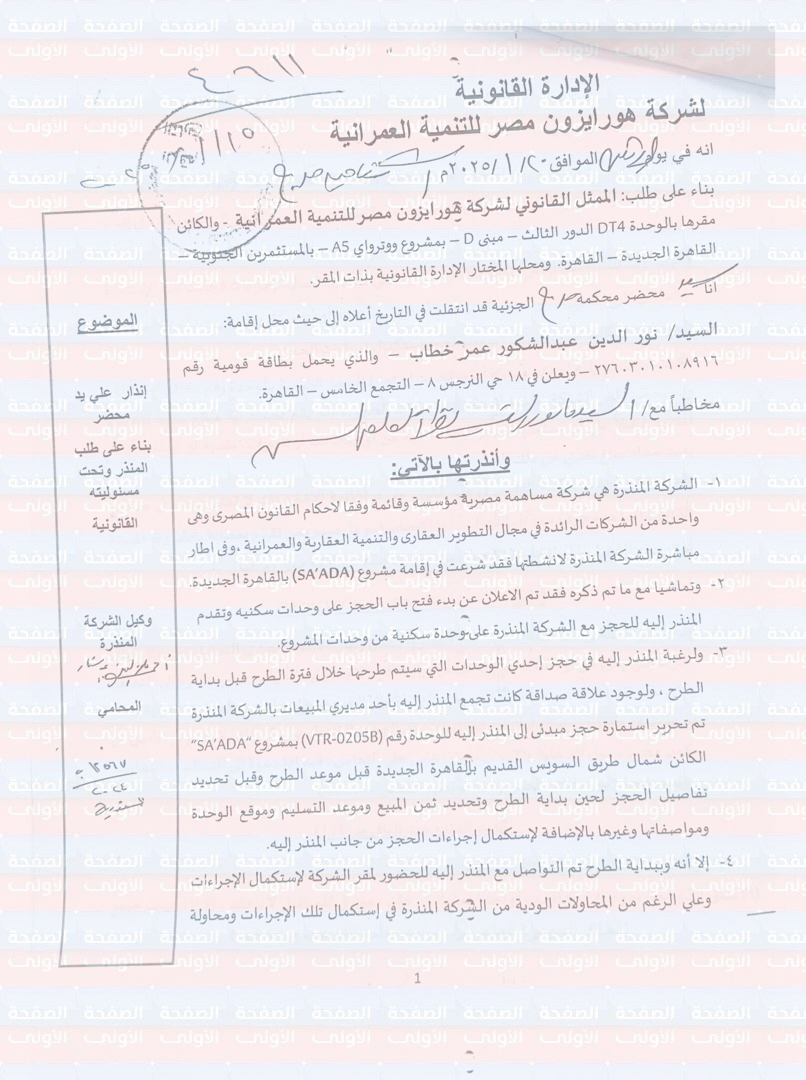 ٤٦١١
الإدارة القانونية
لشركة هورايزون مصر للتنمية العمرانية
انه في يوم الموافق ٢٠٢٥/١/٢٠م
بناء على طلب: الممثل القانوني لشركة هورايزون مصر للتنمية العمرانية - والكائن
مقرها بالوحدة DT4 الدور الثالث – مبنى D – بمشروع ووترواي A5 – بالمستثمرين الجنوبية –
القاهرة الجديدة – القاهرة. ومحلها المختار الإدارة القانونية بذات المقر.
انا محضر محكمة الجزئية قد انتقلت في التاريخ أعلاه إلى حيث محل إقامة:
السيد/ نور الدين عبدالشكور عمر خطاب – والذي يحمل بطاقة قومية رقم
٢٧٦٠٣٠١٠١٠٨٩١٦ – ويعلن في ١٨ حي النرجس ٨ – التجمع الخامس – القاهرة.
مخاطباً مع/
وأنذرتها بالآتى:
١- الشركة المنذرة هي شركة مساهمة مصرية مؤسسة وقائمة وفقا لاحكام القانون المصرى وهى
واحدة من الشركات الرائدة في مجال التطوير العقارى والتنمية العقارية والعمرانية ،وفى اطار
مباشرة الشركة المنذرة لانشطتها فقد شرعت في إقامة مشروع (SA'ADA) بالقاهرة الجديدة.
٢- وتماشيا مع ما تم ذكره فقد تم الاعلان عن بدء فتح باب الحجز على وحدات سكنيه وتقدم
المنذر إليه للحجز مع الشركة المنذرة على وحدة سكنية من وحدات المشروع.
٣- ولرغبة المنذر إليه في حجز إحدي الوحدات التي سيتم طرحها خلال فترة الطرح قبل بداية
الطرح ، ولوجود علاقة صداقة كانت تجمع المنذر إليه بأحد مديري المبيعات بالشركة المنذرة
تم تحرير استمارة حجز مبدئى إلى المنذر إليه للوحدة رقم (VTR-0205B) بمشروع "SA'ADA"
الكائن شمال طريق السويس القديم بالقاهرة الجديدة قبل موعد الطرح وقبل تحديد
تفاصيل الحجز لحين بداية الطرح وتحديد ثمن المبيع وموعد التسليم وموقع الوحدة
ومواصفاتها وغيرها بالإضافة لإستكمال إجراءات الحجز من جانب المنذر إليه.
٤- إلا أنه وببداية الطرح تم التواصل مع المنذر إليه للحضور لمقر الشركة لإستكمال الإجراءات
وعلي الرغم من المحاولات الودية من الشركة المنذرة في إستكمال تلك الإجراءات ومحاولة
الموضوع
إنذار علي يد
محضر
بناء على طلب
المنذر وتحت
مسئوليته
القانونية
وكيل الشركة
المنذرة
المحامي
1